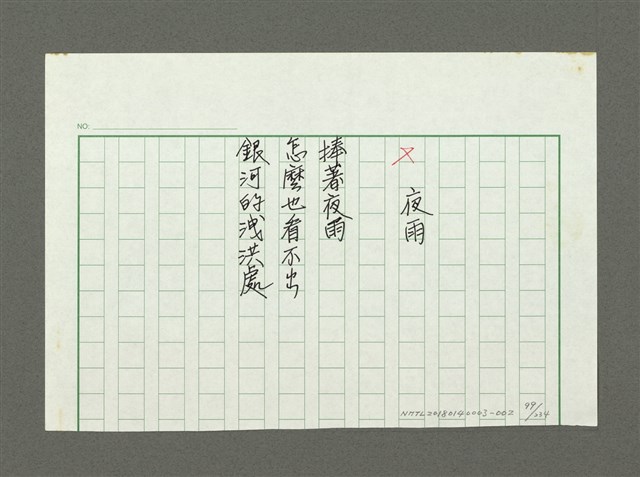 NO:
夜雨
捧著夜雨
怎麼也看不出
銀河的洩洪處
NMTL20180140003-002
99/234